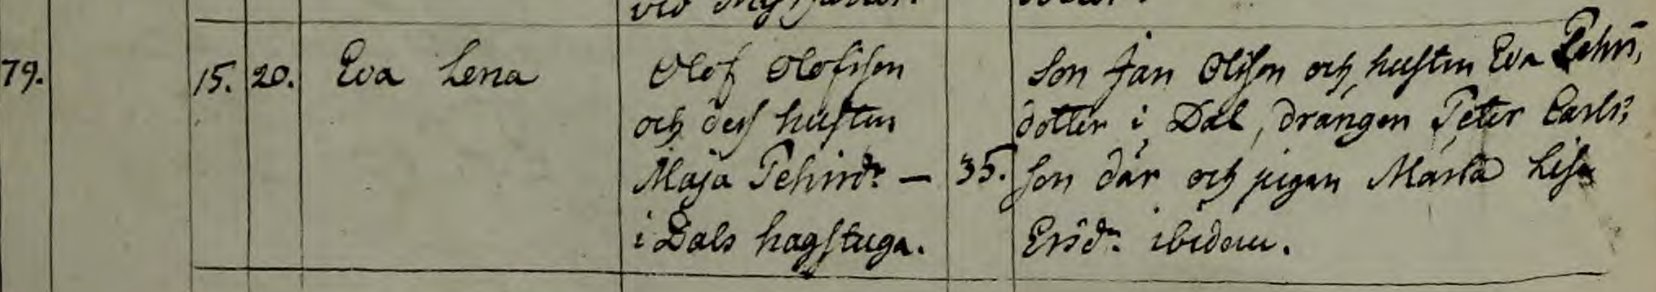 79. 15. 20. Eva Lena Olof Olofsson Son Jan Olsson och hustrun Eva Pehrs,
och dess hustru dotter i Dal, drängen Peter Carls,
Maja Pehrsdr. — 35. son där och pigan Märta Lisa
i Dals hagstuga. Ersdr. ibidem.